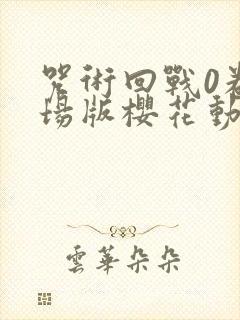 咒術回戰0卷
場版櫻花動
雲華朵朵